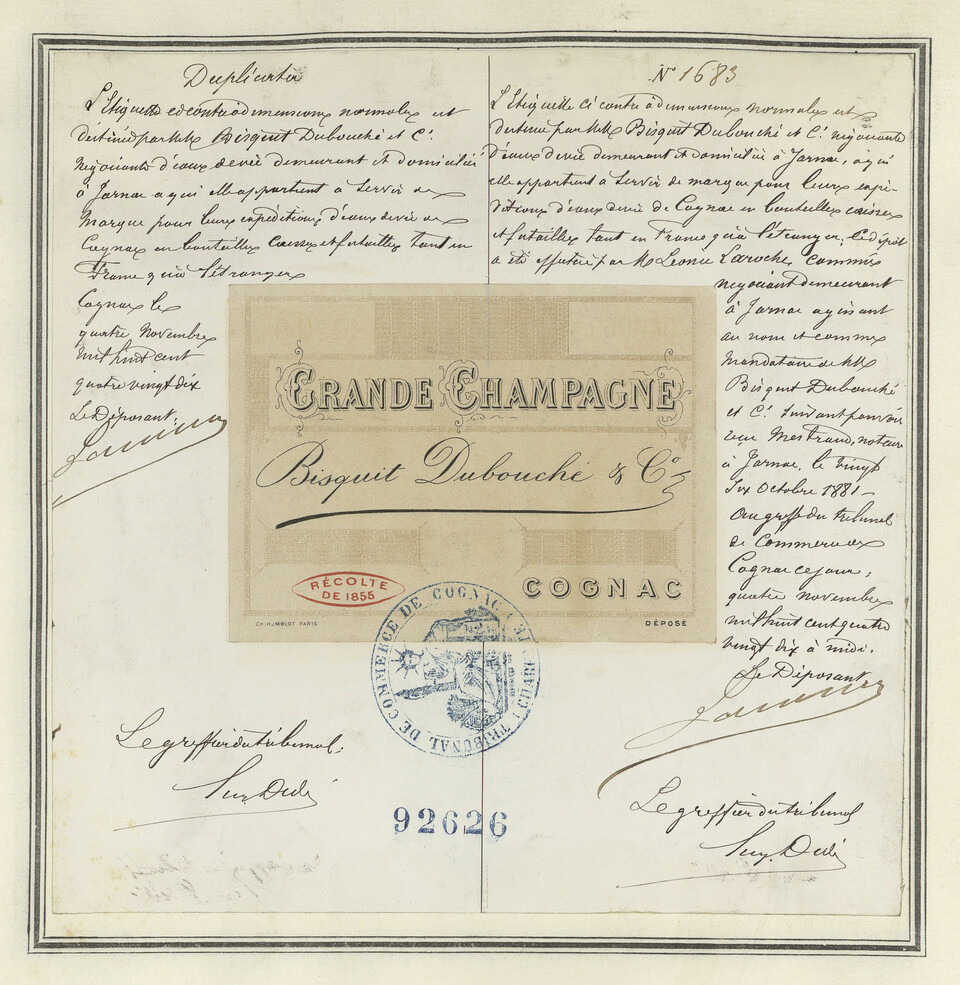 Duplicata
L'Etiquette ci contre à dimensions normales est
destinée par MM Bisquit Dubouché et Cie
négociants d'eaux de vie demeurant et domiciliés
à Jarnac à qui elle appartient à servir de
marque pour leurs expéditions d'eaux de vie de
Cognac en bouteilles caisses et futailles tant en
France qu'à l'étranger
Cognac le
quatre Novembre
mil huit cent
quatre vingt dix
Le Déposant,
Le greffier du tribunal.
N° 1683
L'Etiquette ci contre à dimensions normales est
destinée par MM Bisquit Dubouché et Cie négociants
d'eaux de vie demeurant et domiciliés à Jarnac, à qui
elle appartient à servir de marque pour leurs expé-
ditions d'eaux de vie de Cognac en bouteilles caisses
et futailles tant en France qu'à l'étranger. Ce dépôt
a été effectué par M Léonce Laroche, commis
négociant demeurant
à Jarnac agissant
au nom et comme
mandataire de MM
Bisquit Dubouché
et Cie suivant pouvoir
reçu Mestraud, notaire
à Jarnac, le vingt
six Octobre 1881 -
au greffe du tribunal
de Commerce de
Cognac ce jour,
quatre novembre
mil huit cent quatre
vingt dix à midi.
Le Déposant
Le greffier du tribunal
GRANDE CHAMPAGNE
Bisquit Dubouché & Co
RÉCOLTE
DE 1855
COGNAC
CH. HUMBLOT PARIS
DÉPOSÉ
TRIBUNAL DE COMMERCE DE COGNAC (CHARENTE)
92626